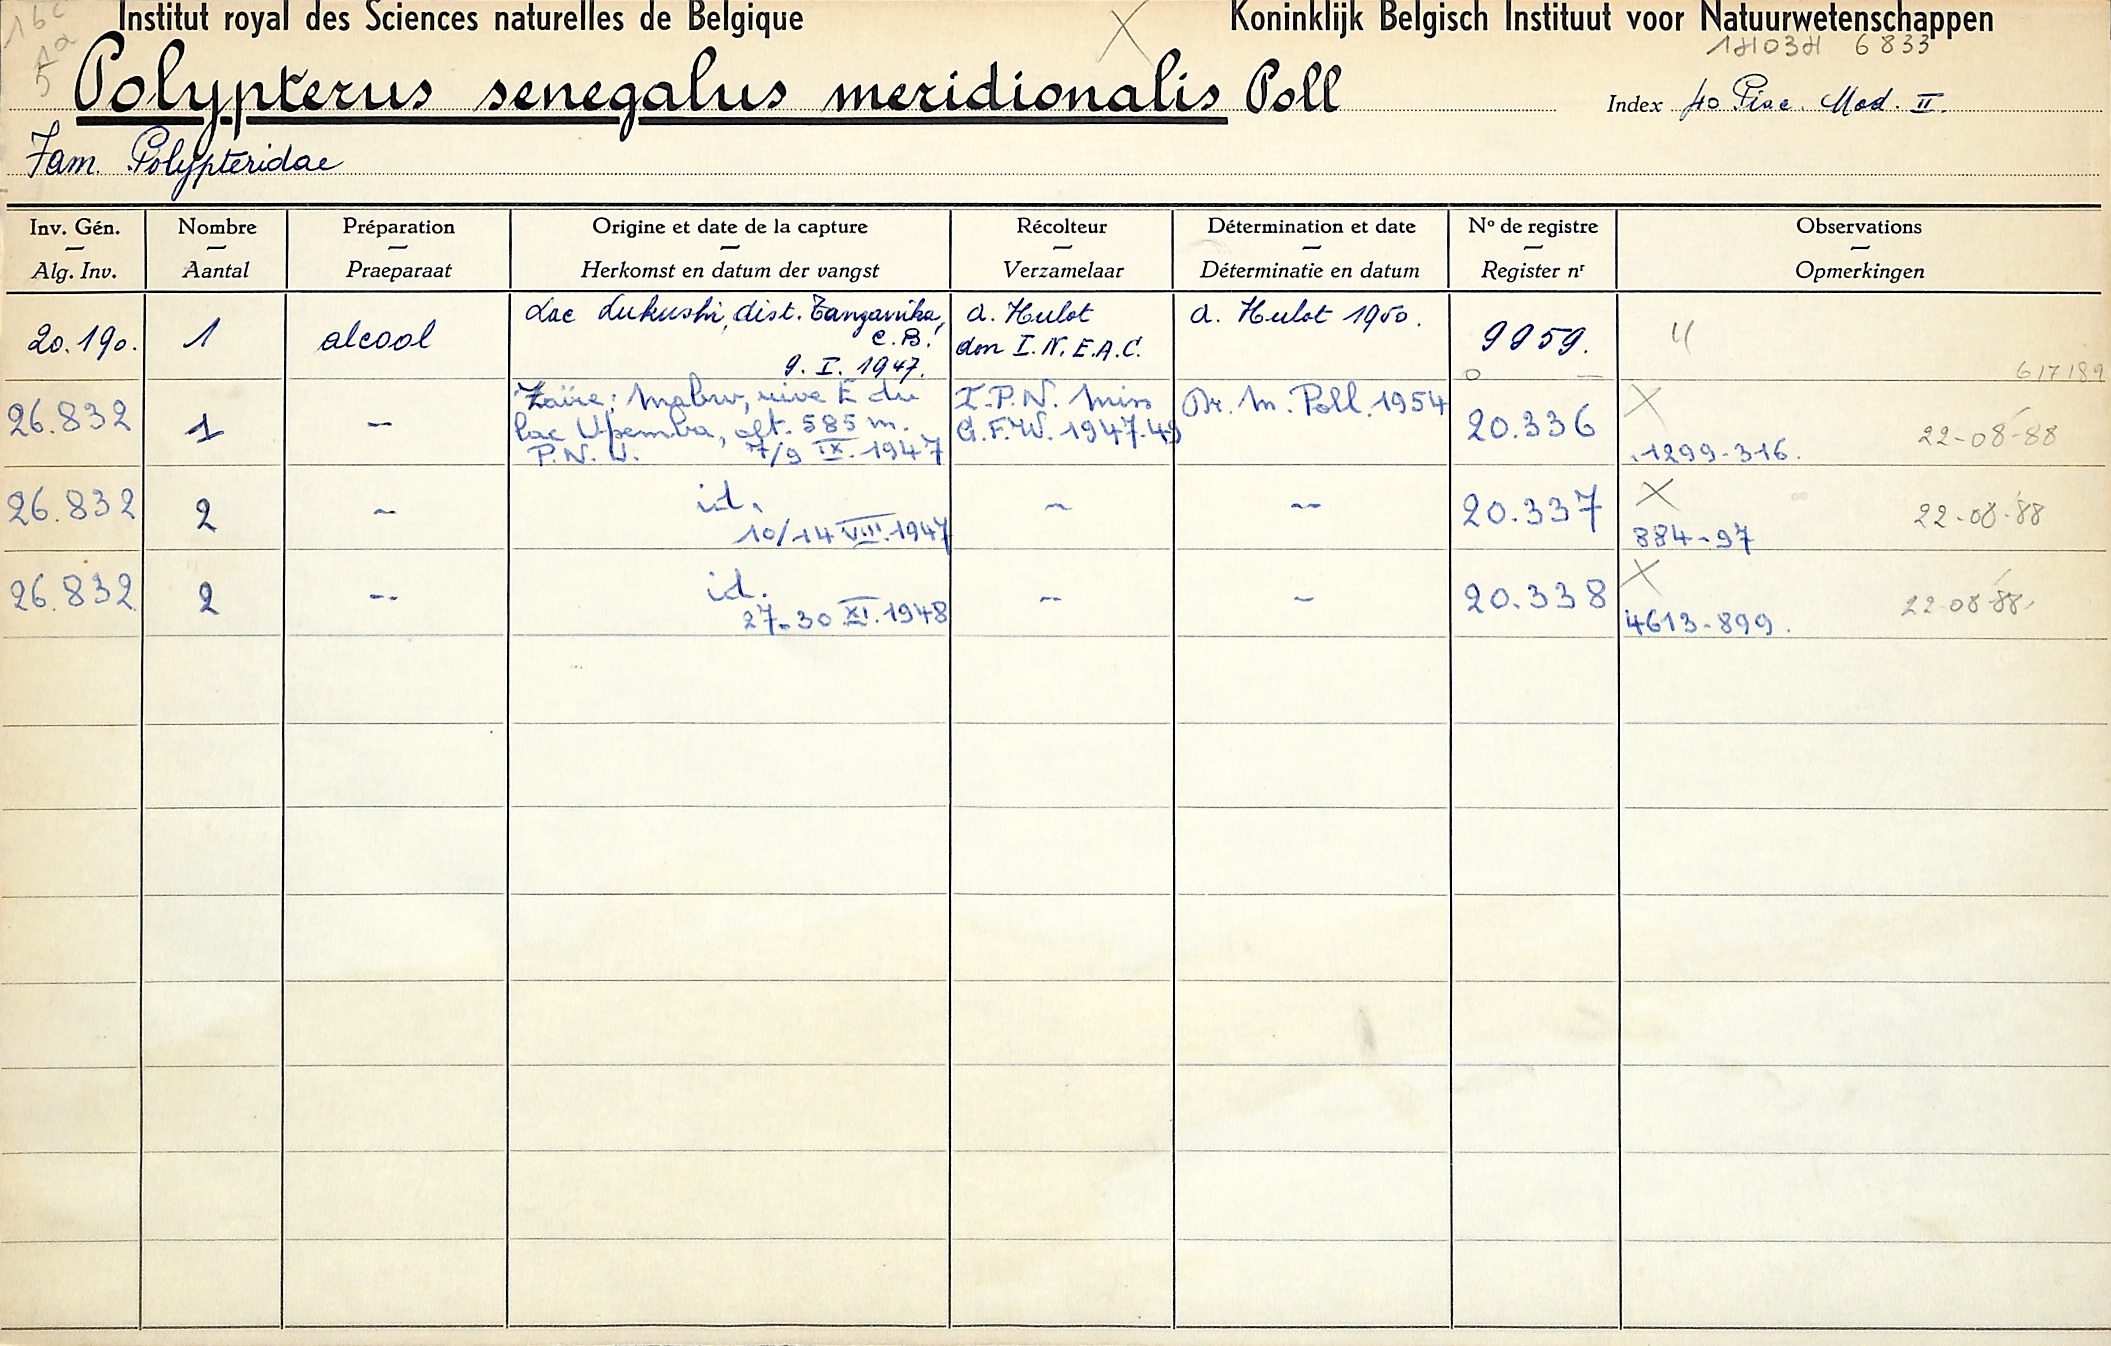 16c
Institut royal des Sciences naturelles de Belgique
Koninklijk Belgisch Instituut voor Natuurwetenschappen
X
6833
Polypterus senegalus meridionalis Poll
Index 40 Pisc. Mod. II.
Fam. Polypteridae
Inv. Gén. Nombre Préparation Origine et date de la capture Récolteur Détermination et date Nº de registre Observations
Alg. Inv. Aantal Praeparaat Herkomst en datum der vangst Verzamelaar Déterminatie en datum Register nr Opmerkingen
20.190. 1 alcool Lac Lukushi, dist. Tanganika, C.B. 9. I. 1947. A. Hulot don I.N.E.A.C. A. Hulot 1950. 9959. 617189
26.832 1 – Zaïre: Mabwe, rive E du
lac Upemba, alt. 585 m.
P.N.U. 7/9 IX. 1947 I.P.N. Miss
G.F.W. 1947-49 Dr. M. Poll. 1954 20.336 X
1299-316. 22-08-88
26.832 2 – id.
10/14 VIII. 1947 – – 20.337 X
884-97 22-08-88
26.832 2 – id.
27-30 XI. 1948 – – 20.338 X
4613-899. 22-08-88